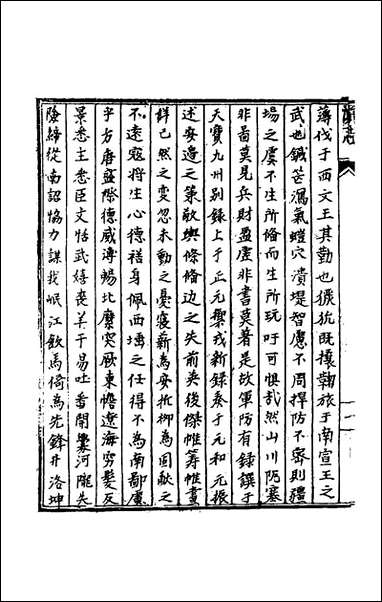 薄伐于西文王其勤也玁狁既攘勒旅于南宣王之
武也鍼芒瀉氣螘穴潰堤智慮不周捍防不密則疆
場之虞不生所備而生所玩吁可惧哉然山川阨塞
非圖莫見兵財盈虛非書莫著是故軍防有錄譔于
天寶九州別錄上于正元禦戎新錄奏于元和元振
述安邊之策敬輿條備邊之失前英後傑帷籌帷畫
鍳已然之變忽未動之憂寢薪為安折柳為固猷之
不遠寇將生心德禧身佩西埤之任得不為南鄙慮
乎方唐盛際德威溥暢比靡突厥東憺遼海窮髮反
景悉主悉臣文恬武嬉喪羊于易吐蕃閒釁河隴失
險締從南詔協力謀我岷江飲馬倚為先鋒井洛坤